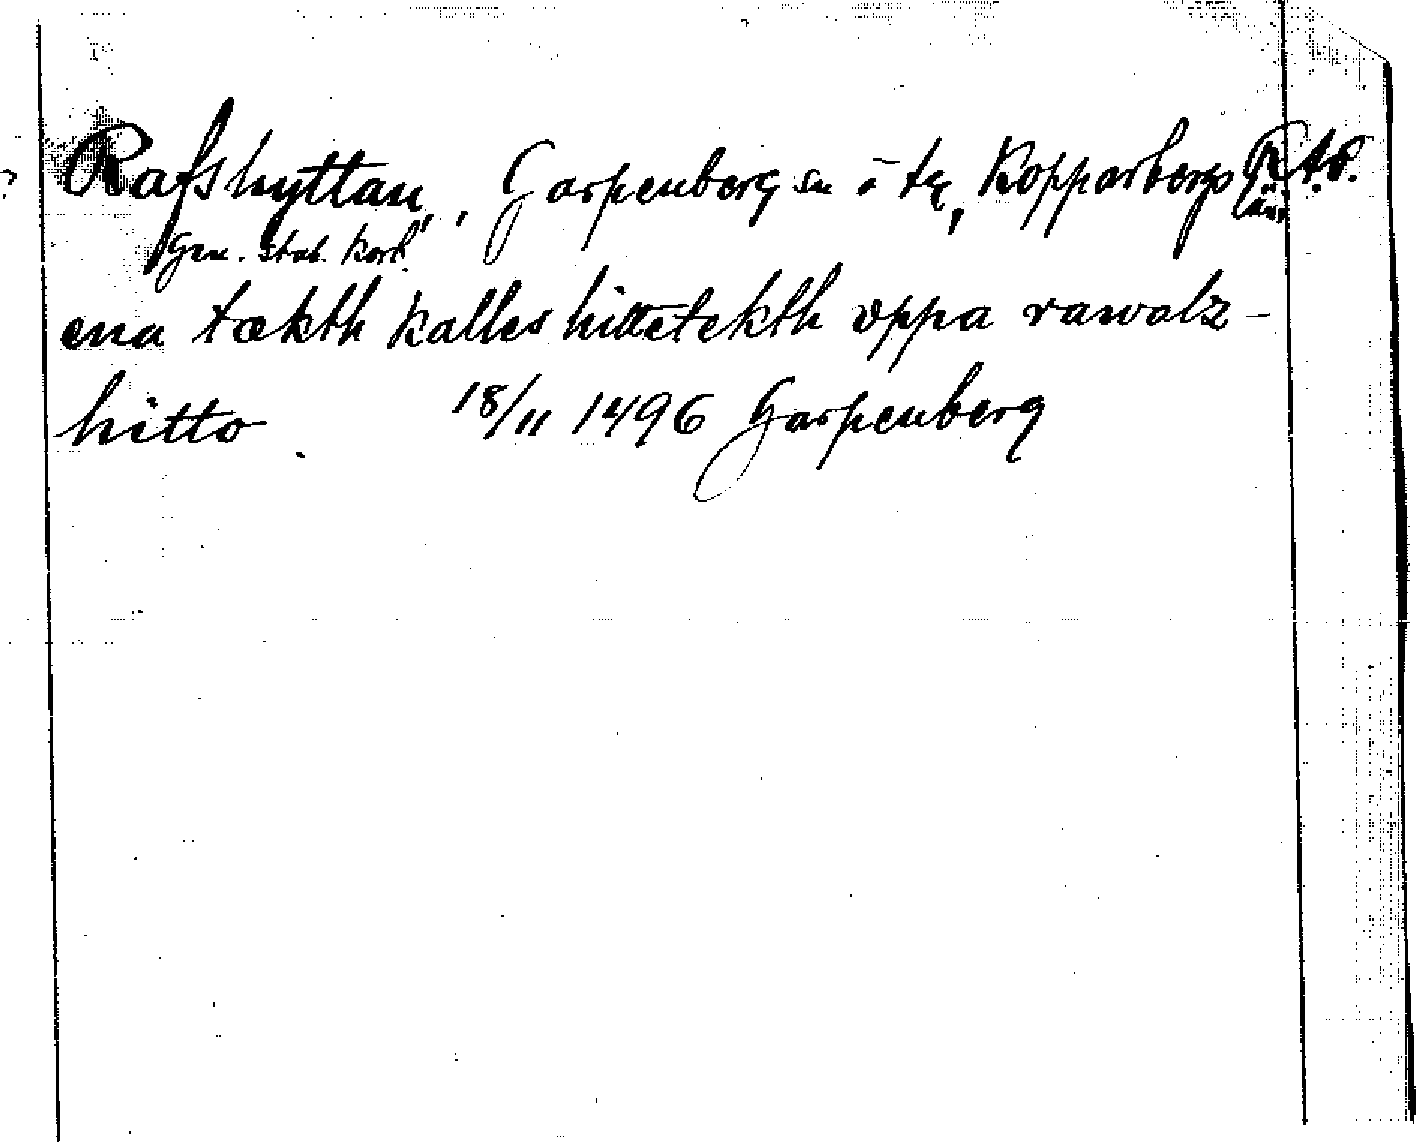 Rafshyttan, Garpenberg sn o tg, Kopparbergs län,
Gen. stab. kort.
ena tækth kalles hittetekth oppa rawalz-
hitto 18/11 1496 Garpenberg